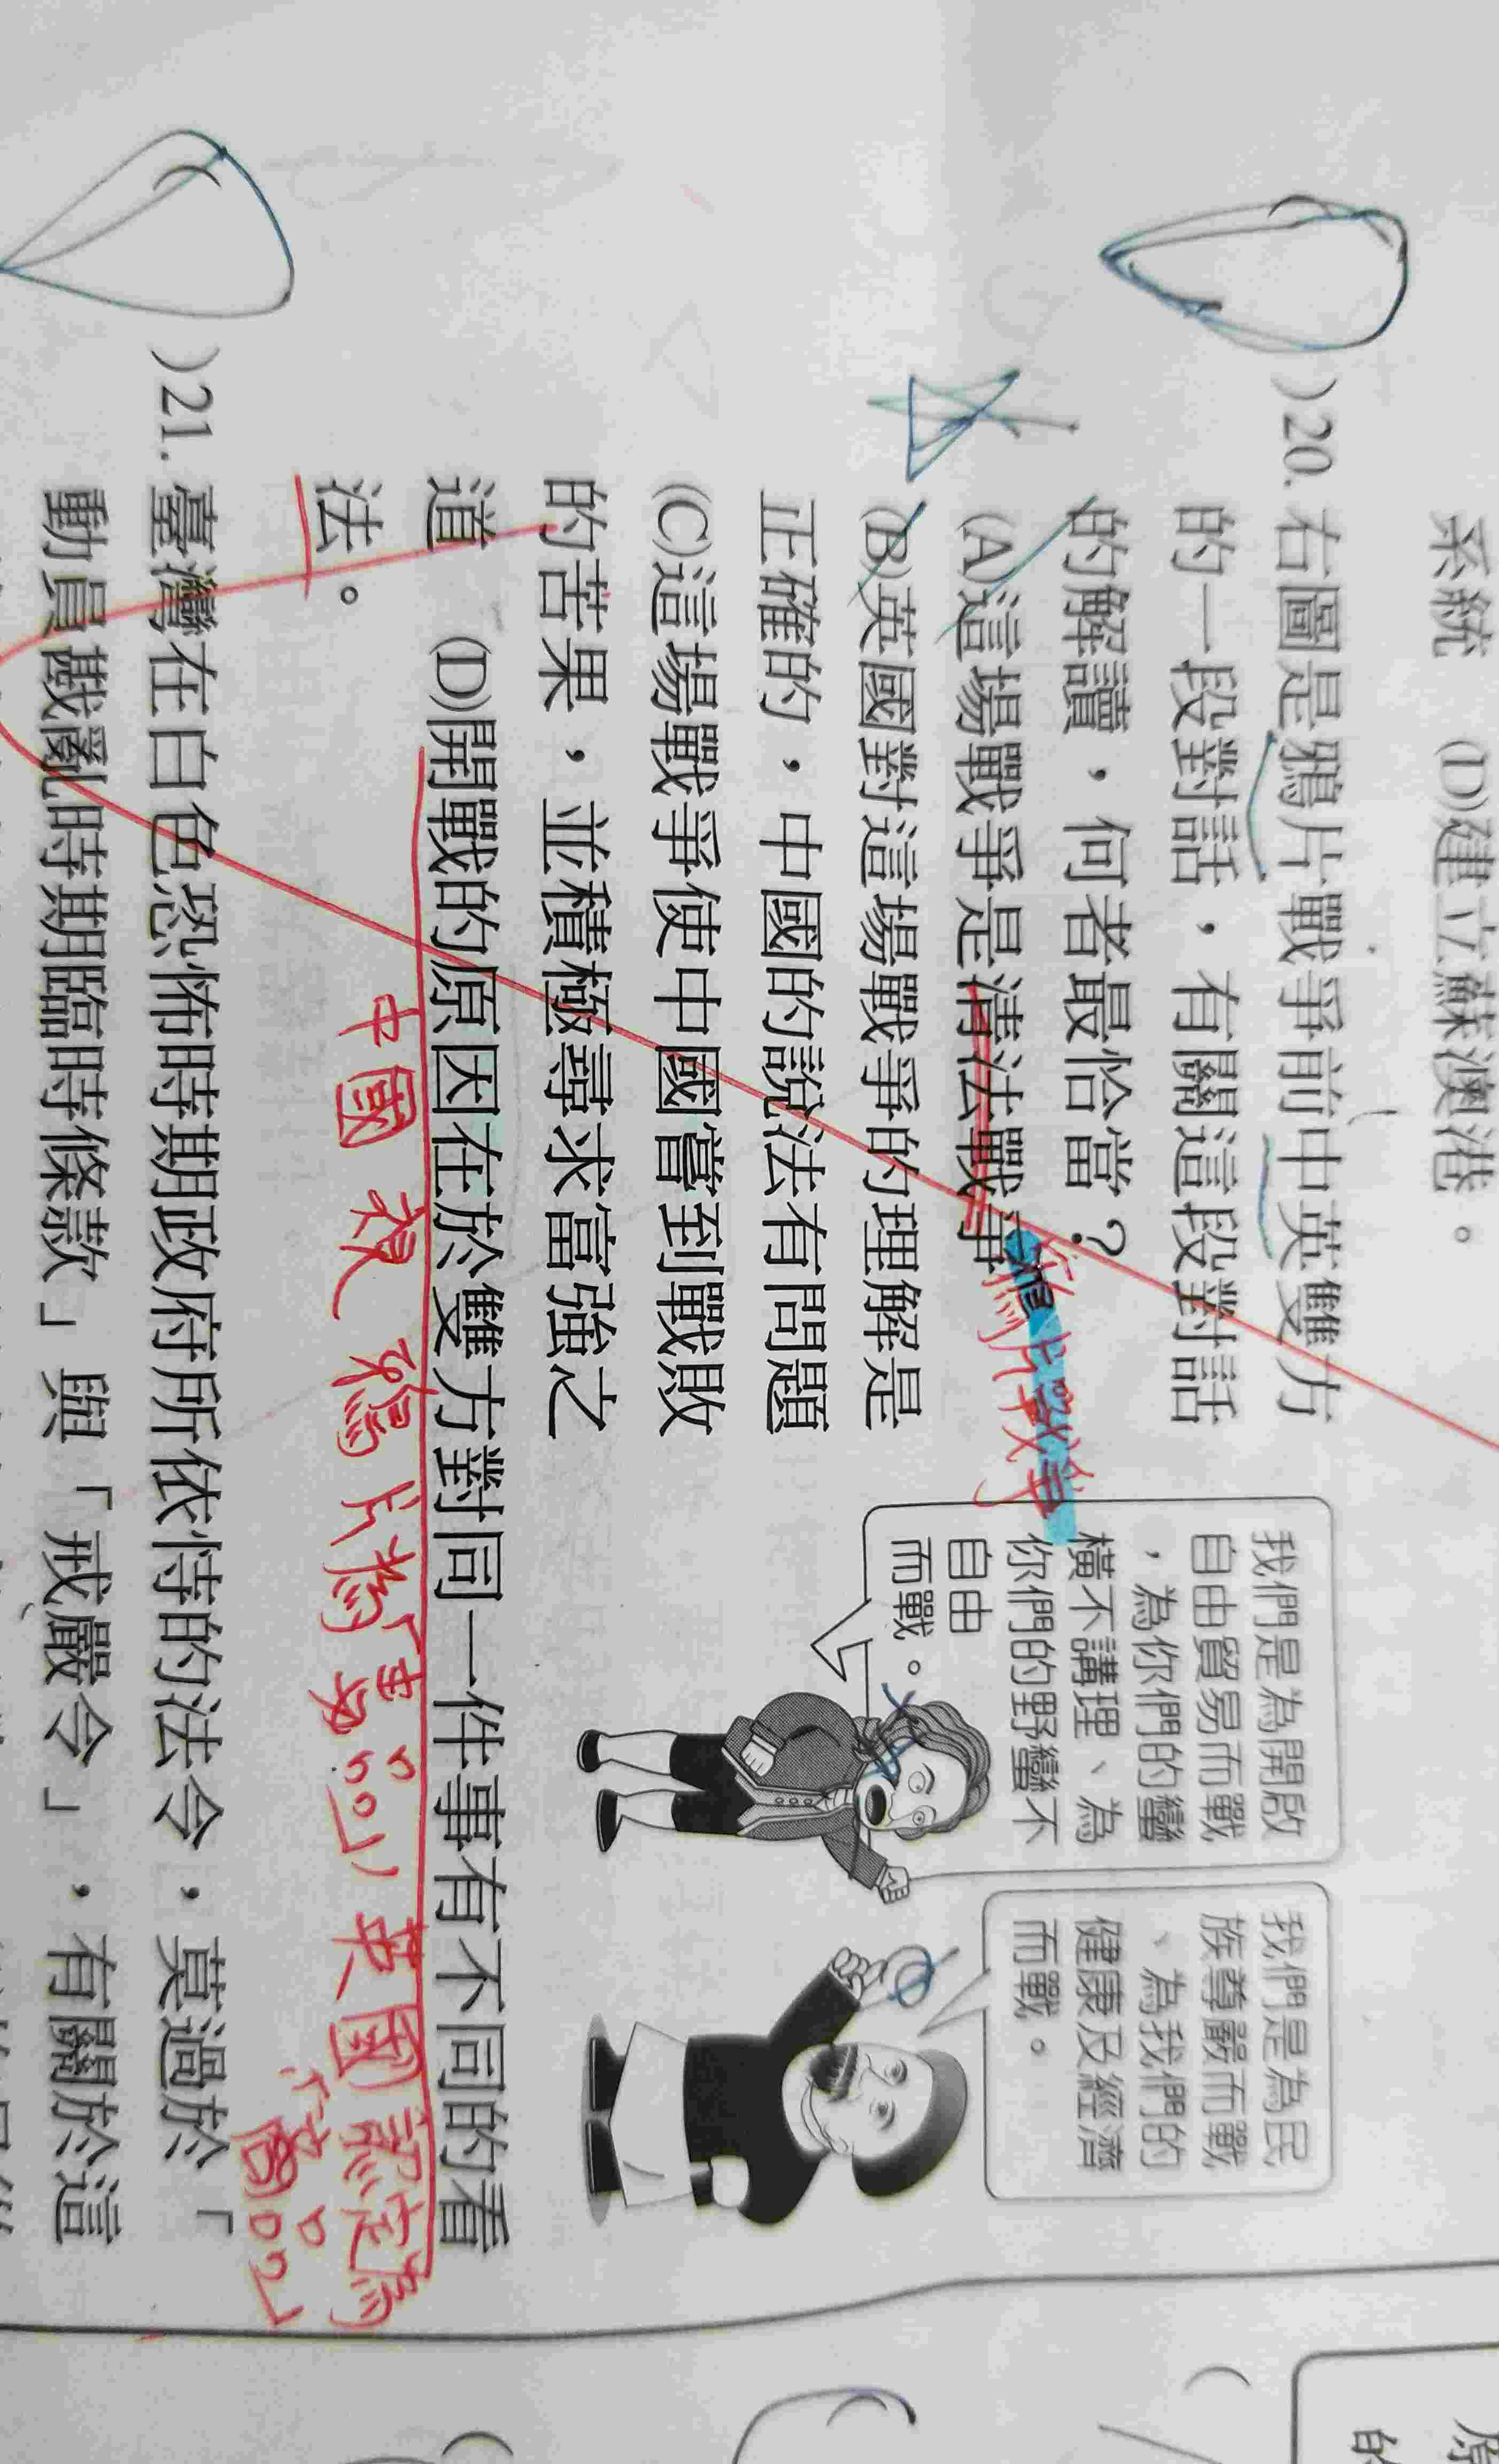 系統　(D)建立蘇澳港。
)20. 右圖是鴉片戰爭前中英雙方
的一段對話，有關這段對話
的解讀，何者最恰當？
(A)這場戰爭是清法戰爭
鴉片戰爭
(B)英國對這場戰爭的理解是
正確的，中國的說法有問題
(C)這場戰爭使中國嘗到戰敗
的苦果，並積極尋求富強之
道　(D)開戰的原因在於雙方對同一件事有不同的看
法。
中國視鴉片為「毒品」
英國認定為
「商品」
我們是為開啟
自由貿易而戰
，為你們的蠻
橫不講理、為
你們的野蠻不
自由
而戰。
我們是為民
族尊嚴而戰
、為我們的
健康及經濟
而戰。
)21. 臺灣在白色恐怖時期政府所依恃的法令，莫過於「
動員戡亂時期臨時條款」與「戒嚴令」，有關於這